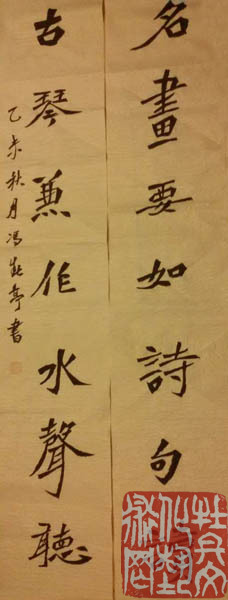 名畫要如詩句
古琴兼作水聲聽
乙未秋月馮亭書